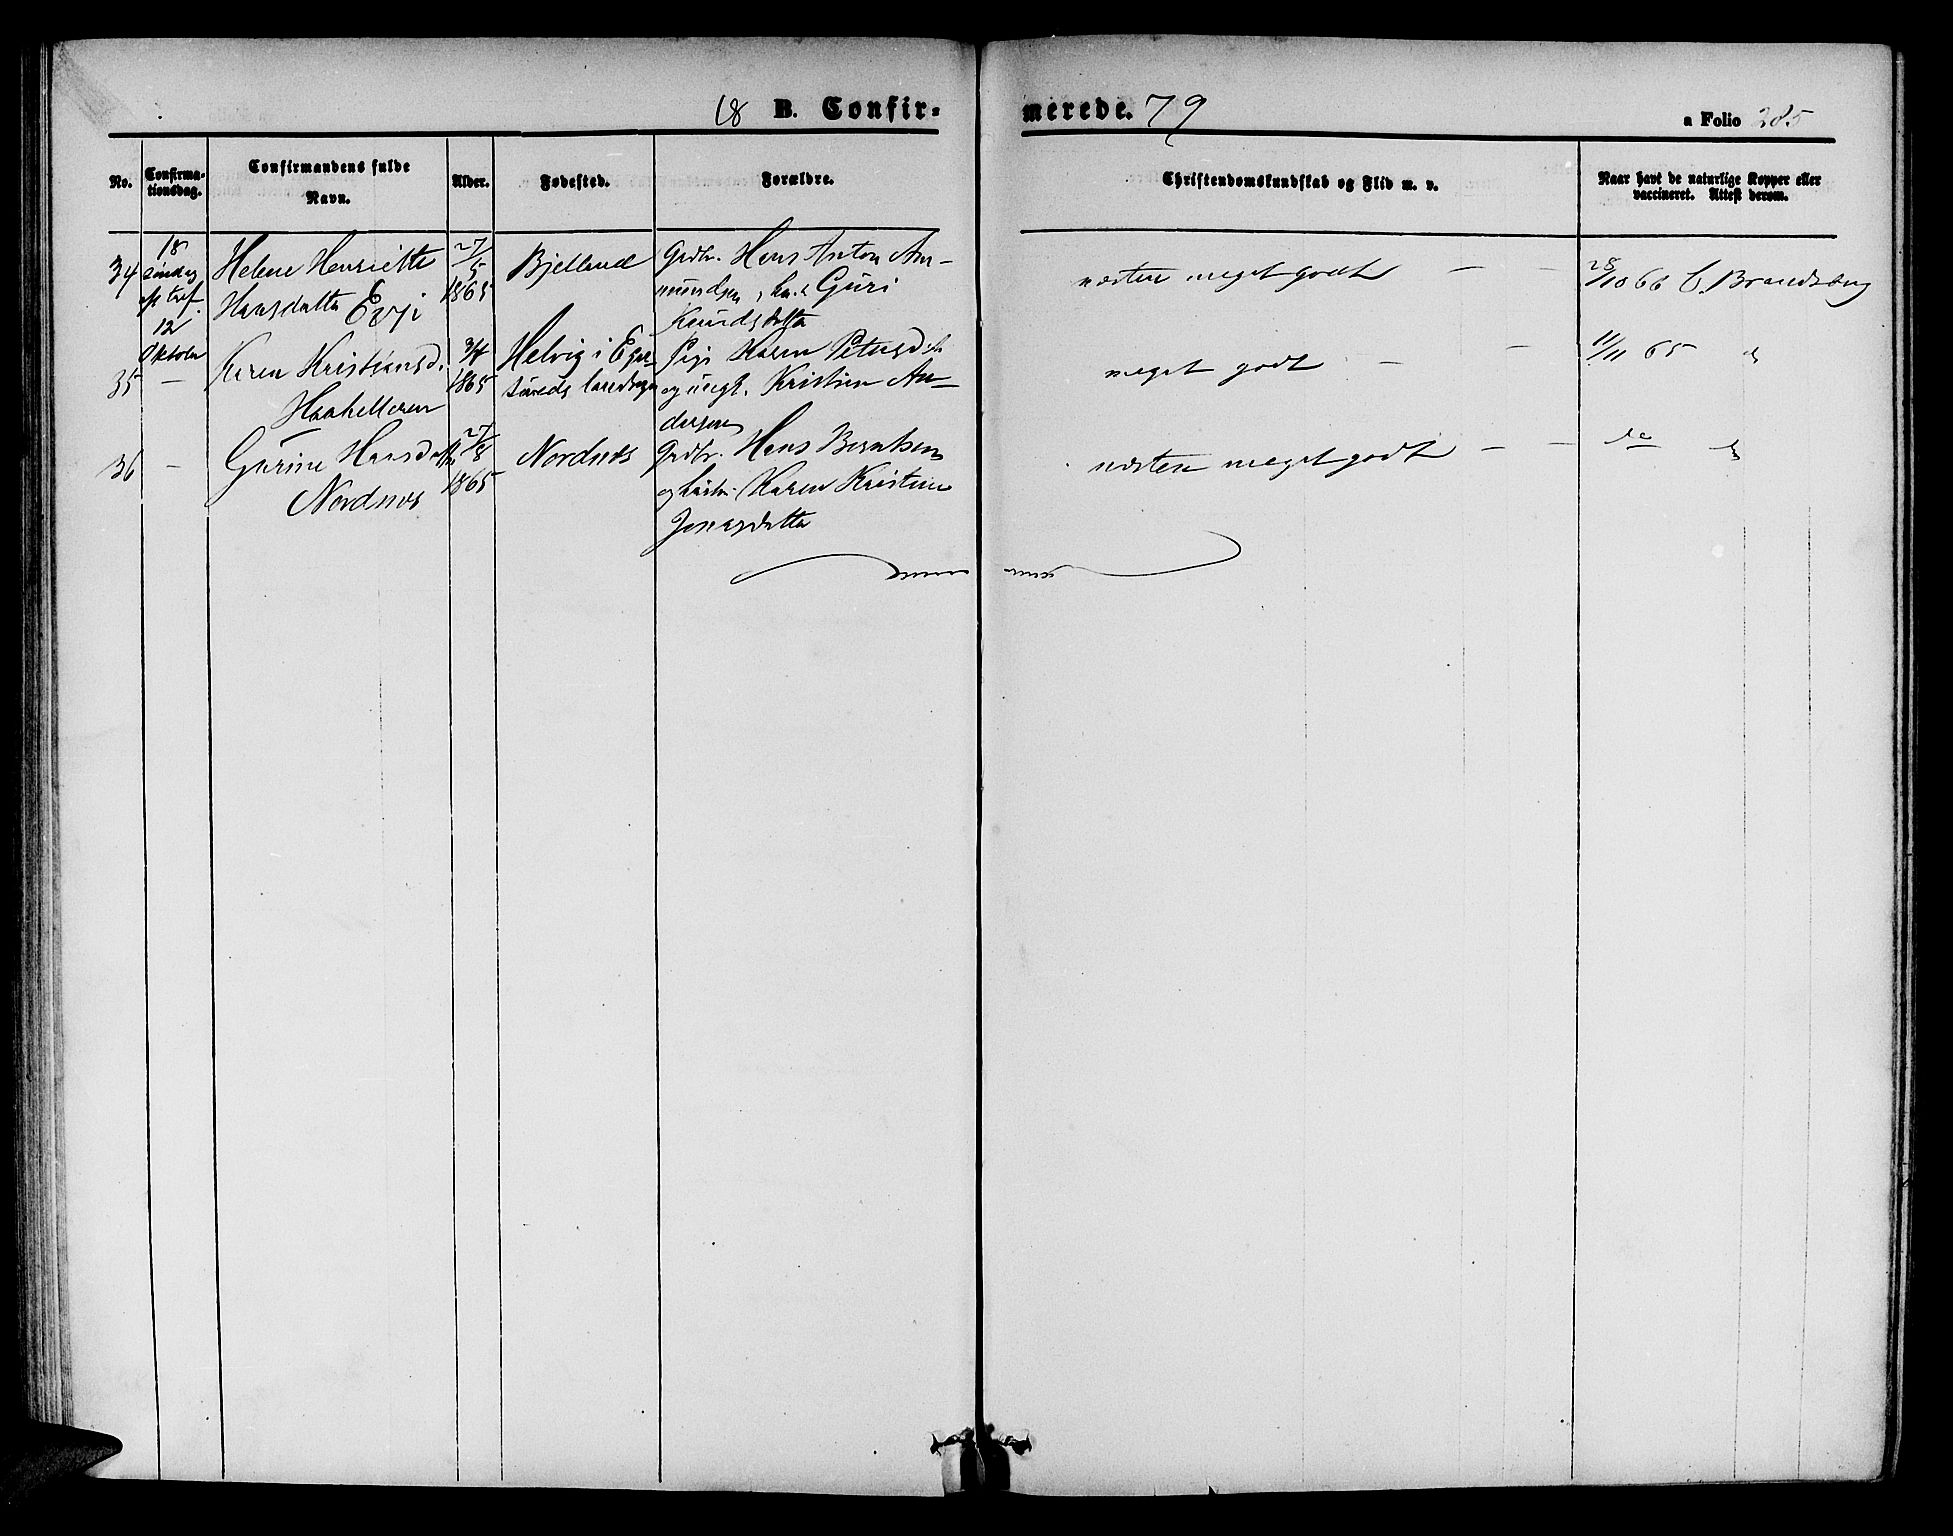 18 B. Confir- merede. 79
a Folio 285
No.
Confirma-
tionsdag.
Confirmandens fulde
Navn.
Alder.
Fødested.
Forældre.
Christendomskundskab og Flid m. v.
Naar havt de naturlige Kopper eller
vaccineret. Attest derom.
34
18
Søndag
ef. Tref.
12
Oktober
Helene Henriette
Hansdatter Evji
27/5
1865
Bjelland
Grdbr. Hans Anton Am-
mundsen, Guri
Knudsdatter
næsten meget godt — —
28/10 66 C. Brandsberg
35 —
Karen Kristiansd.
3/4
1865
Helvig i Eger-
sunds landsogn
Pige Karen Petersd.
og ungk. Kristian An-
dersen
meget godt — —
11/11 65
36 —
Gurine Hansdatter
Nordnes
27/8
1865
Nordnes
Grdbr. Hans Berntsen
og hustr. Karen Kristine
Jonasdatter
næsten meget godt — —
do